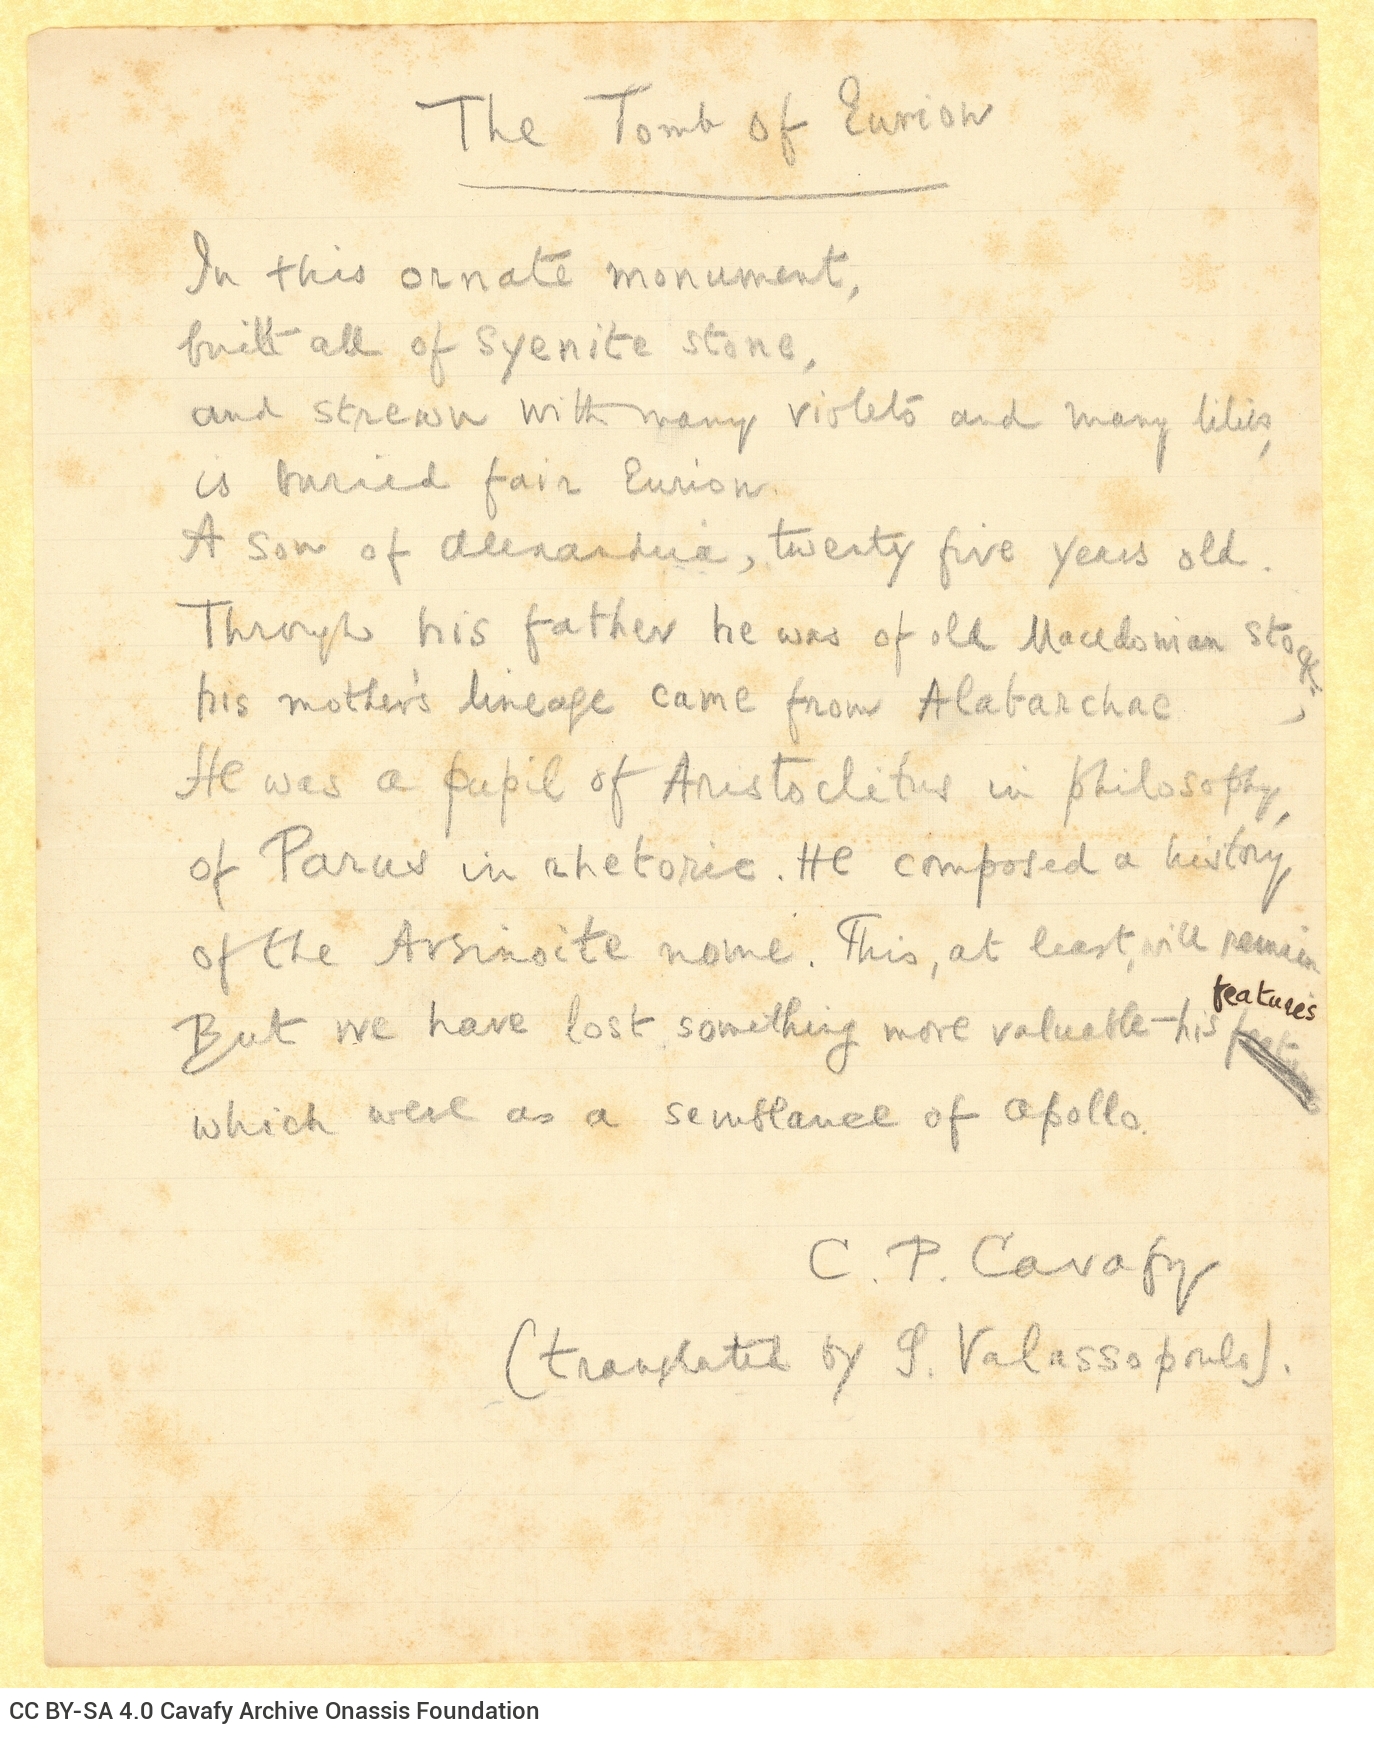 The Tomb of Eurion
In this ornate monument,
built all of Syenite stone,
and strewn with many violets and many lilies,
is buried fair Eurion.
A son of Alexandria, twenty five years old.
Through his father he was of old Macedonian stock;
his mother's lineage came from Alabarchae
He was a pupil of Aristoclitus in philosophy,
of Parus in rhetoric. He composed a history
of the Arsinoite nome. This, at least, will remain
But we have lost something more valuable - his features
which were as a semblance of Apollo.
C. P. Cavafy
(translated by G. Valassopoulo).
CC BY-SA 4.0 Cavafy Archive Onassis Foundation